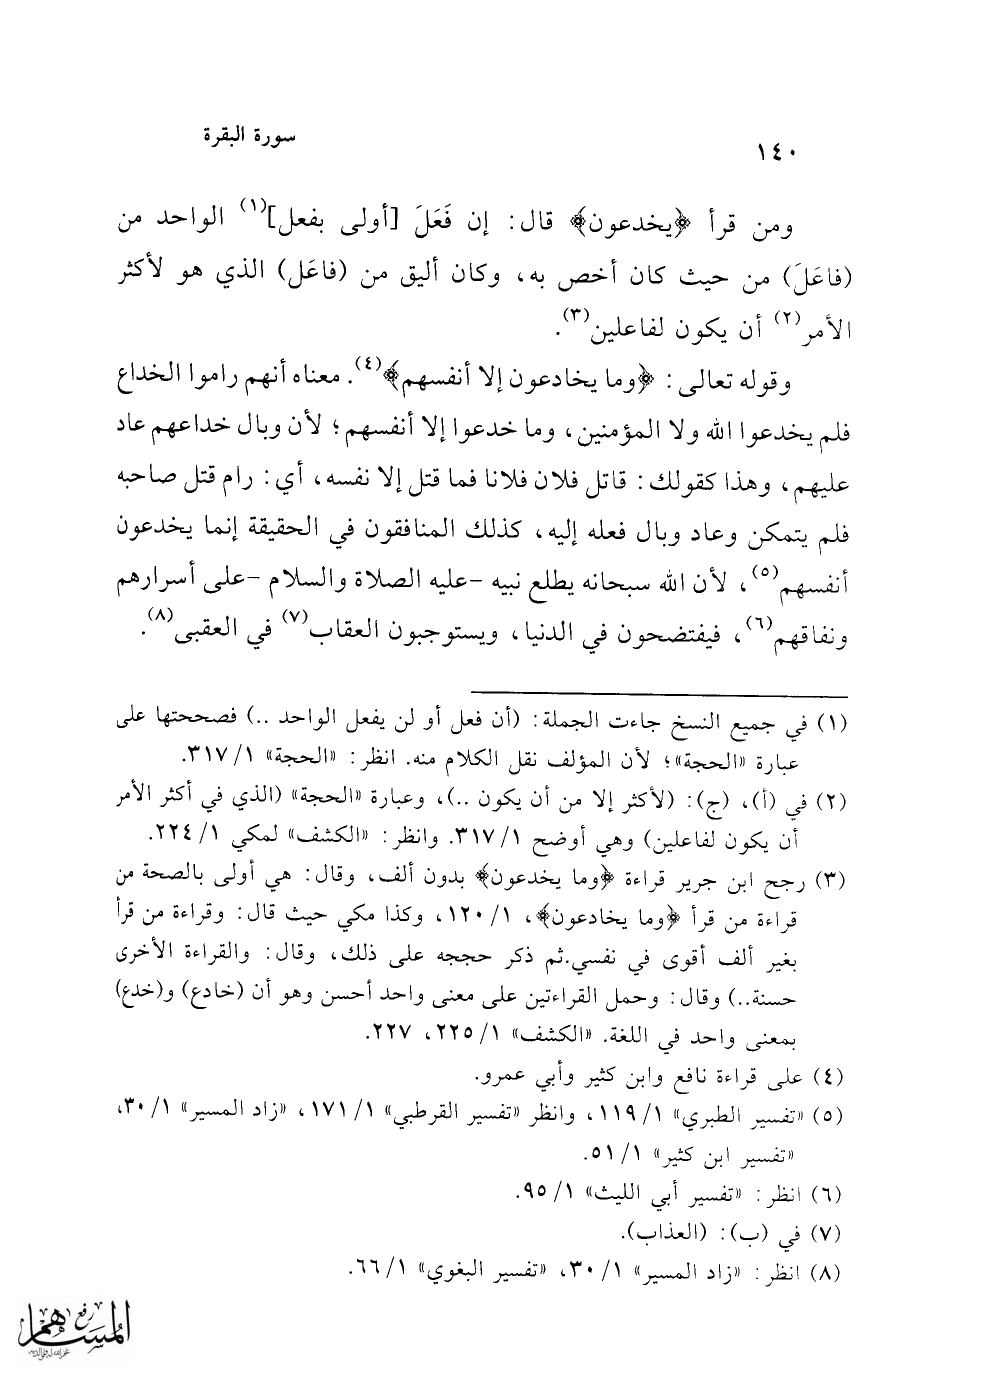 سورة البقرة
١٤٠
ومن قرأ ﴿يخدعون﴾ قال: إن فَعَلَ [أولى بفعل](١) الواحد من
(فاعَلَ) من حيث كان أخص به، وكان أليق من (فاعَل) الذي هو لأكثر
الأمر(٢) أن يكون لفاعلين(٣).
وقوله تعالى: ﴿وما يخادعون إلا أنفسهم﴾(٤). معناه أنهم راموا الخداع
فلم يخدعوا الله ولا المؤمنين، وما خدعوا إلا أنفسهم؛ لأن وبال خداعهم عاد
عليهم، وهذا كقولك: قاتل فلان فلانا فما قتل إلا نفسه، أي: رام قتل صاحبه
فلم يتمكن وعاد وبال فعله إليه، كذلك المنافقون في الحقيقة إنما يخدعون
أنفسهم(٥)، لأن الله سبحانه يطلع نبيه -عليه الصلاة والسلام -على أسرارهم
ونفاقهم(٦)، فيفتضحون في الدنيا، ويستوجبون العقاب(٧) في العقبى(٨).
(١) في جميع النسخ جاءت الجملة: (أن فعل أو لن يفعل الواحد ..) فصححتها على
عبارة «الحجة»؛ لأن المؤلف نقل الكلام منه. انظر: «الحجة» ١/ ٣١٧.
(٢) في (أ)، (ج): (لأكثر إلا من أن يكون ..)، وعبارة «الحجة» (الذي في أكثر الأمر
أن يكون لفاعلين) وهي أوضح ١/ ٣١٧. وانظر: «الكشف» لمكي ١/ ٢٢٤.
(٣) رجح ابن جرير قراءة ﴿وما يخدعون﴾ بدون ألف، وقال: هي أولى بالصحة من
قراءة من قرأ ﴿وما يخادعون﴾، ١/ ١٢٠، وكذا مكي حيث قال: وقراءة من قرأ
بغير ألف أقوى في نفسي.ثم ذكر حججه على ذلك، وقال: والقراءة الأخرى
حسنة..) وقال: وحمل القراءتين على معنى واحد أحسن وهو أن (خادع) و(خدع)
بمعنى واحد في اللغة. «الكشف» ١/ ٢٢٥، ٢٢٧.
(٤) على قراءة نافع وابن كثير وأبي عمرو.
(٥) «تفسير الطبري» ١/ ١١٩، وانظر «تفسير القرطبي» ١/ ١٧١، «زاد المسير» ١/ ٣٠،
«تفسير ابن كثير» ١/ ٥١.
(٦) انظر: «تفسير أبي الليث» ١/ ٩٥.
(٧) في (ب): (العذاب).
(٨) انظر: «زاد المسير» ١/ ٣٠، «تفسير البغوي» ١/ ٦٦.